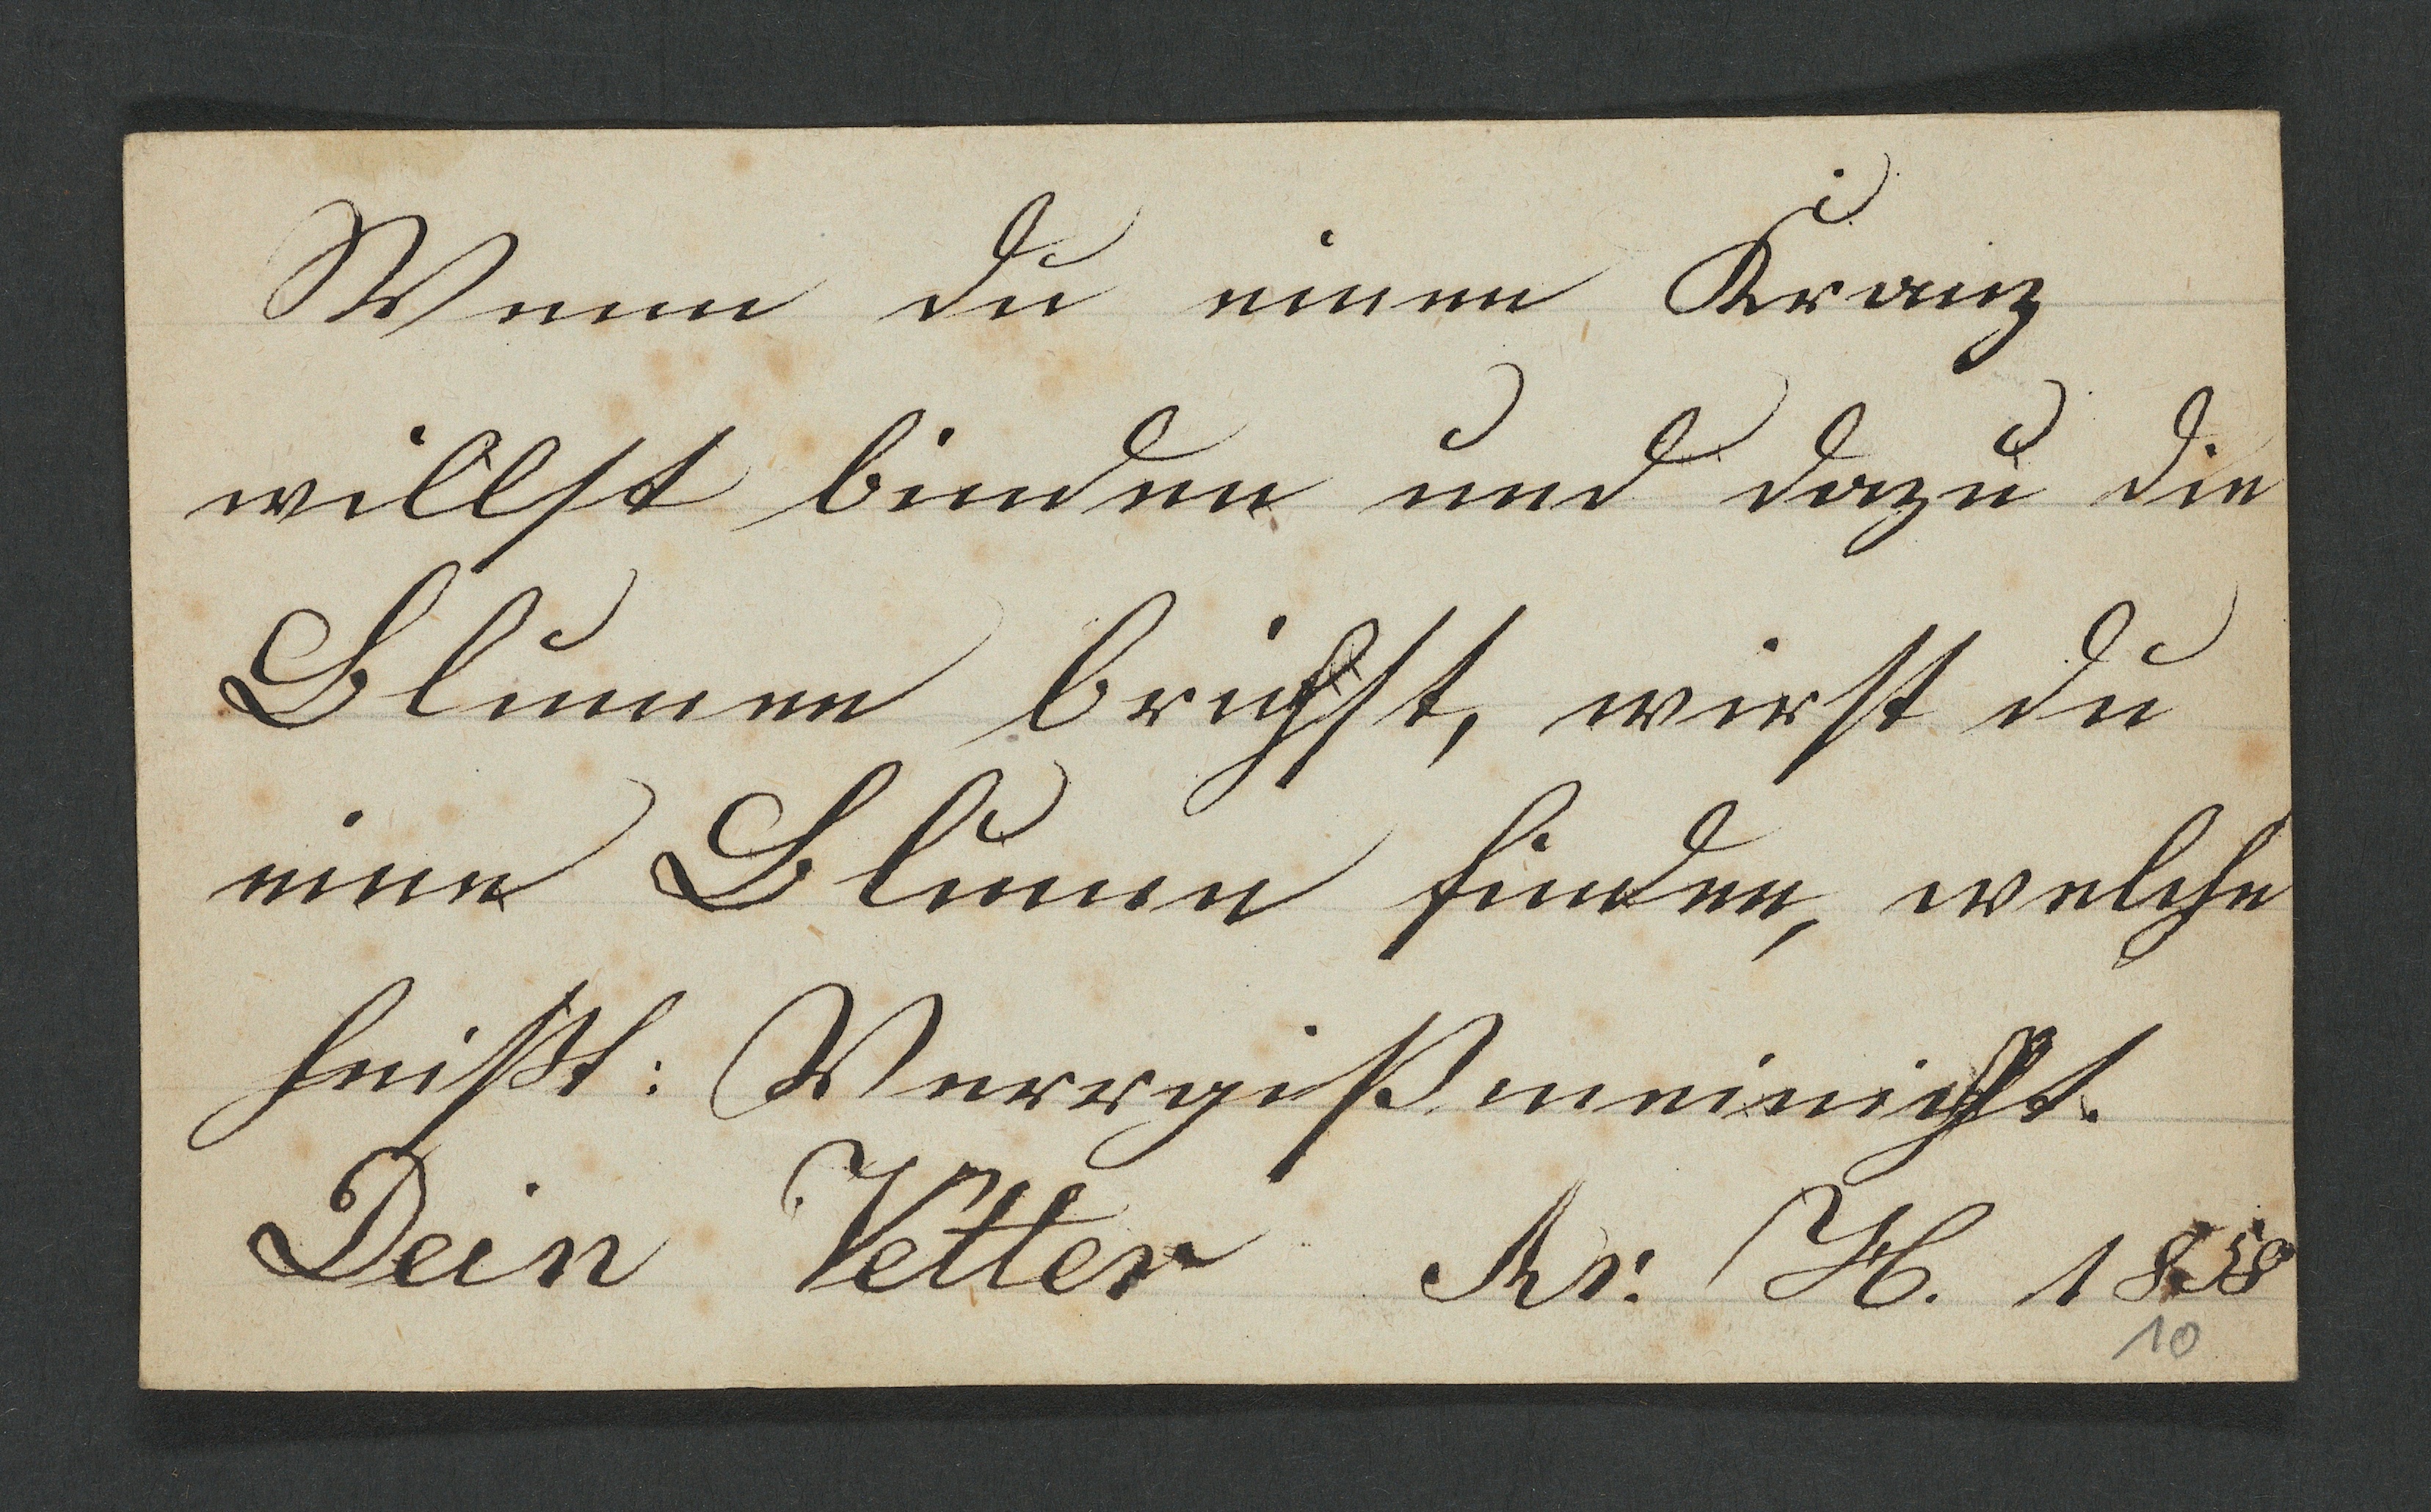 Wenn du einen Kranz
willst binden und dazu die
Blumen brichst, wirst du
eine Blume finden, welche
heißt: Verrgißmeinicht.
Dein Vetter Kr: H. 1858
10